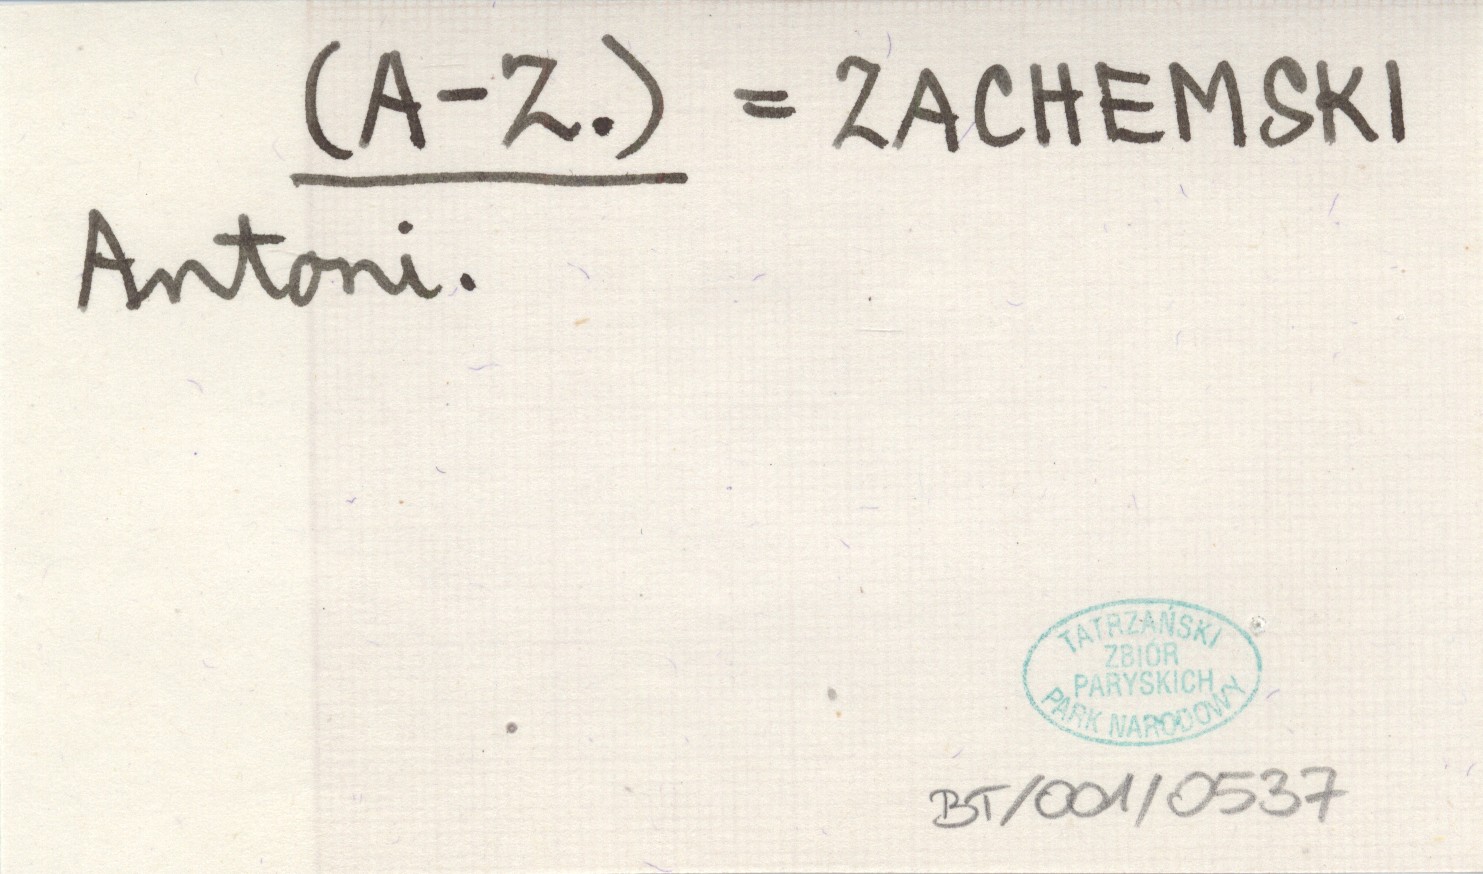 (A-Z.) = ZACHEMSKI
Antoni.
TATRZAŃSKI
ZBIÓR
PARYSKICH
PARK NARODOWY
BT/001/0537